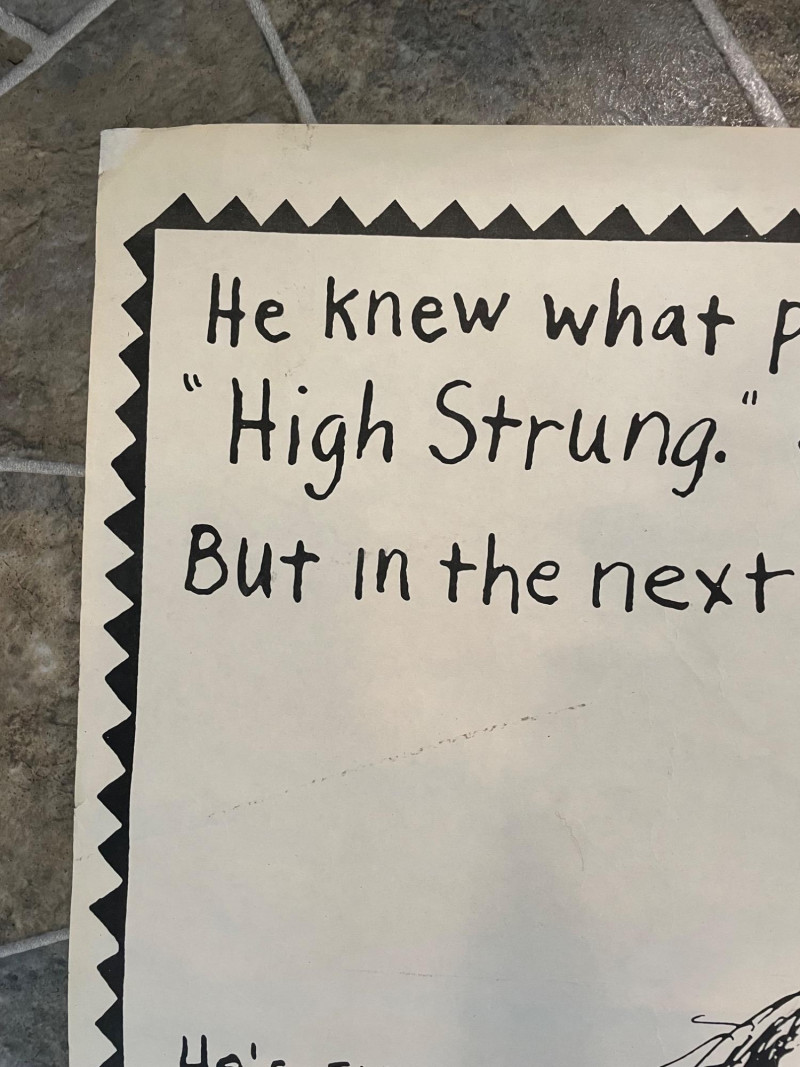 He knew what
"High Strung."
But in the next
He's